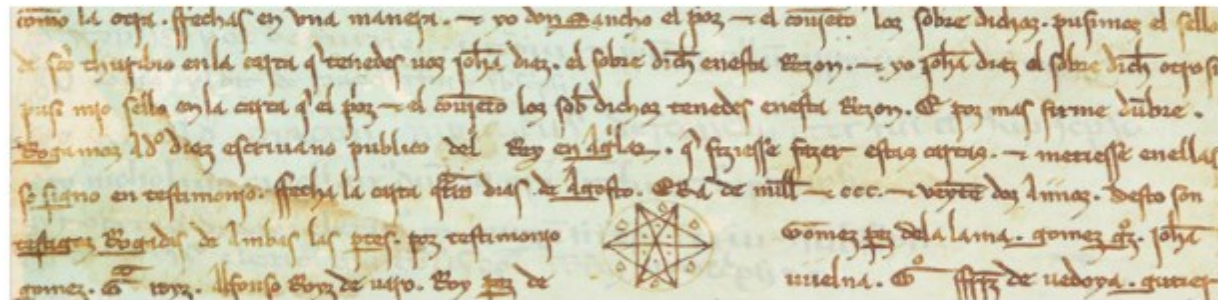 como la otra. ffechas en vna manera. ⁊ yo don Sancho el p̃or ⁊ el conueto los sobre dichos. pusimos el sello
de sc̃o thuribio en la carta q̃ tenedes uos johã diaz. el sobre dich̃ enesta Razon. ⁊ yo johã diaz el sobre dich̃ otrosi
pusi mjo sello en la carta q̃ el p̃or ⁊ el conueto los sob̃ dichos tenedes enesta Razon. E por mas firme dũbre.
Rogamos diez escriuano publico del Rey en q̃ fiziesse fazer estas cartas. ⁊ metiesse enellas
so signo en testimonjo. ffecha la carta dias de Agosto. ERA de mill ⁊ ccc. ⁊ veynte dos Annos. desto son
testigos Rogados de Ambas las ptes. por testimonjo Gomez pez dela lama. gomez johã
gomez. royz. Alfonso Royz de Roy pez de de uedoya. gutier